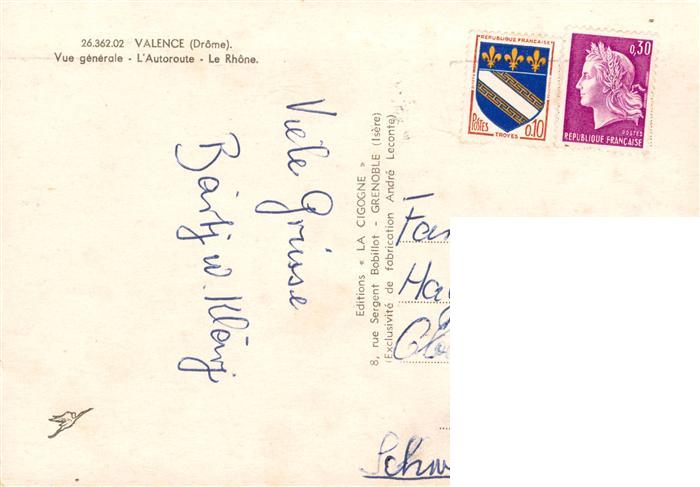 26.362.02 VALENCE (Drôme).
Vue générale - L'Autoroute - Le Rhône.
RÉPUBLIQUE FRANÇAISE
POSTES
0,10
TROYES
0,30
POSTES
REPUBLIQUE FRANÇAISE
Viele Grüsse
Editions « LA CIGOGNE »
8, rue Sergent Bobillot - GRENOBLE (Isère)
(Exclusivité de fabrication André Leconte)